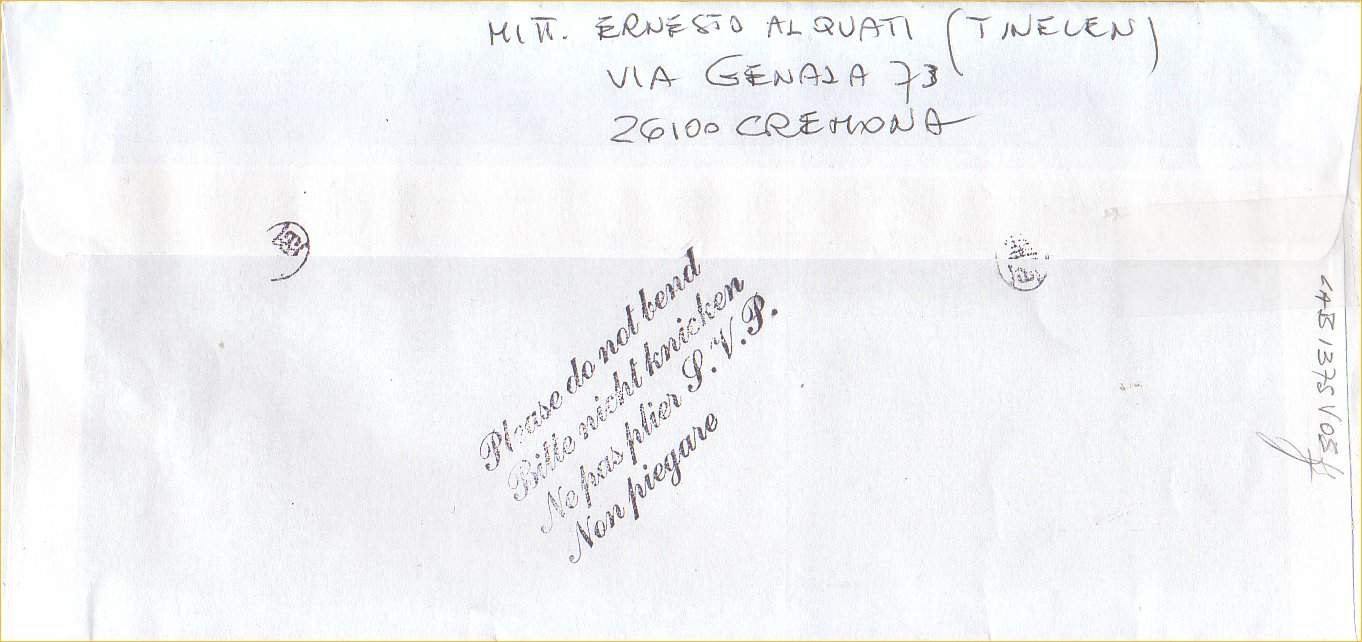 MITT. ERNESTO ALQUATI (TINELEN)
VIA GENALA 73
26100 CREMONA
Please do not bend
Bitte nicht knicken
Ne pas plier S.V.P.
Non piegare